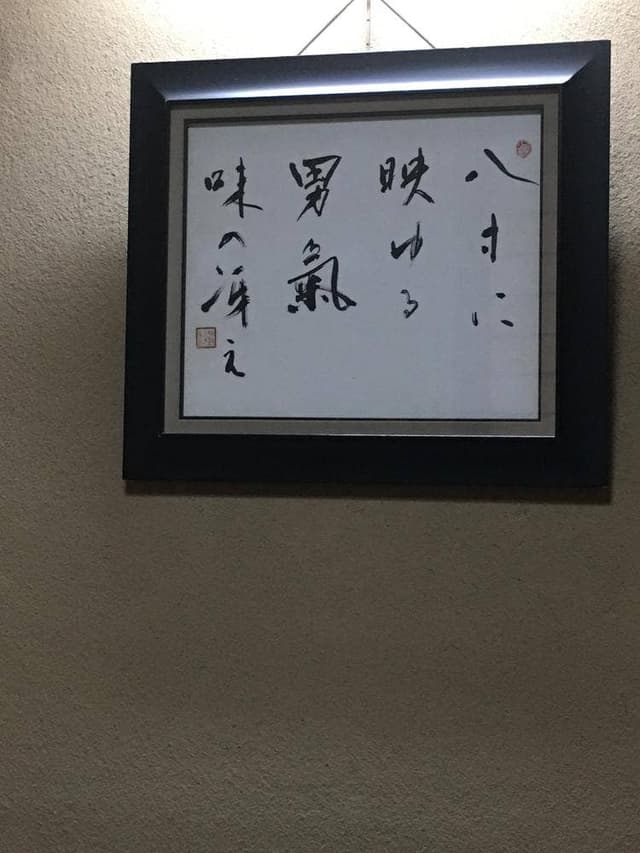 八寸に
映ゆる
男氣
味の冴え